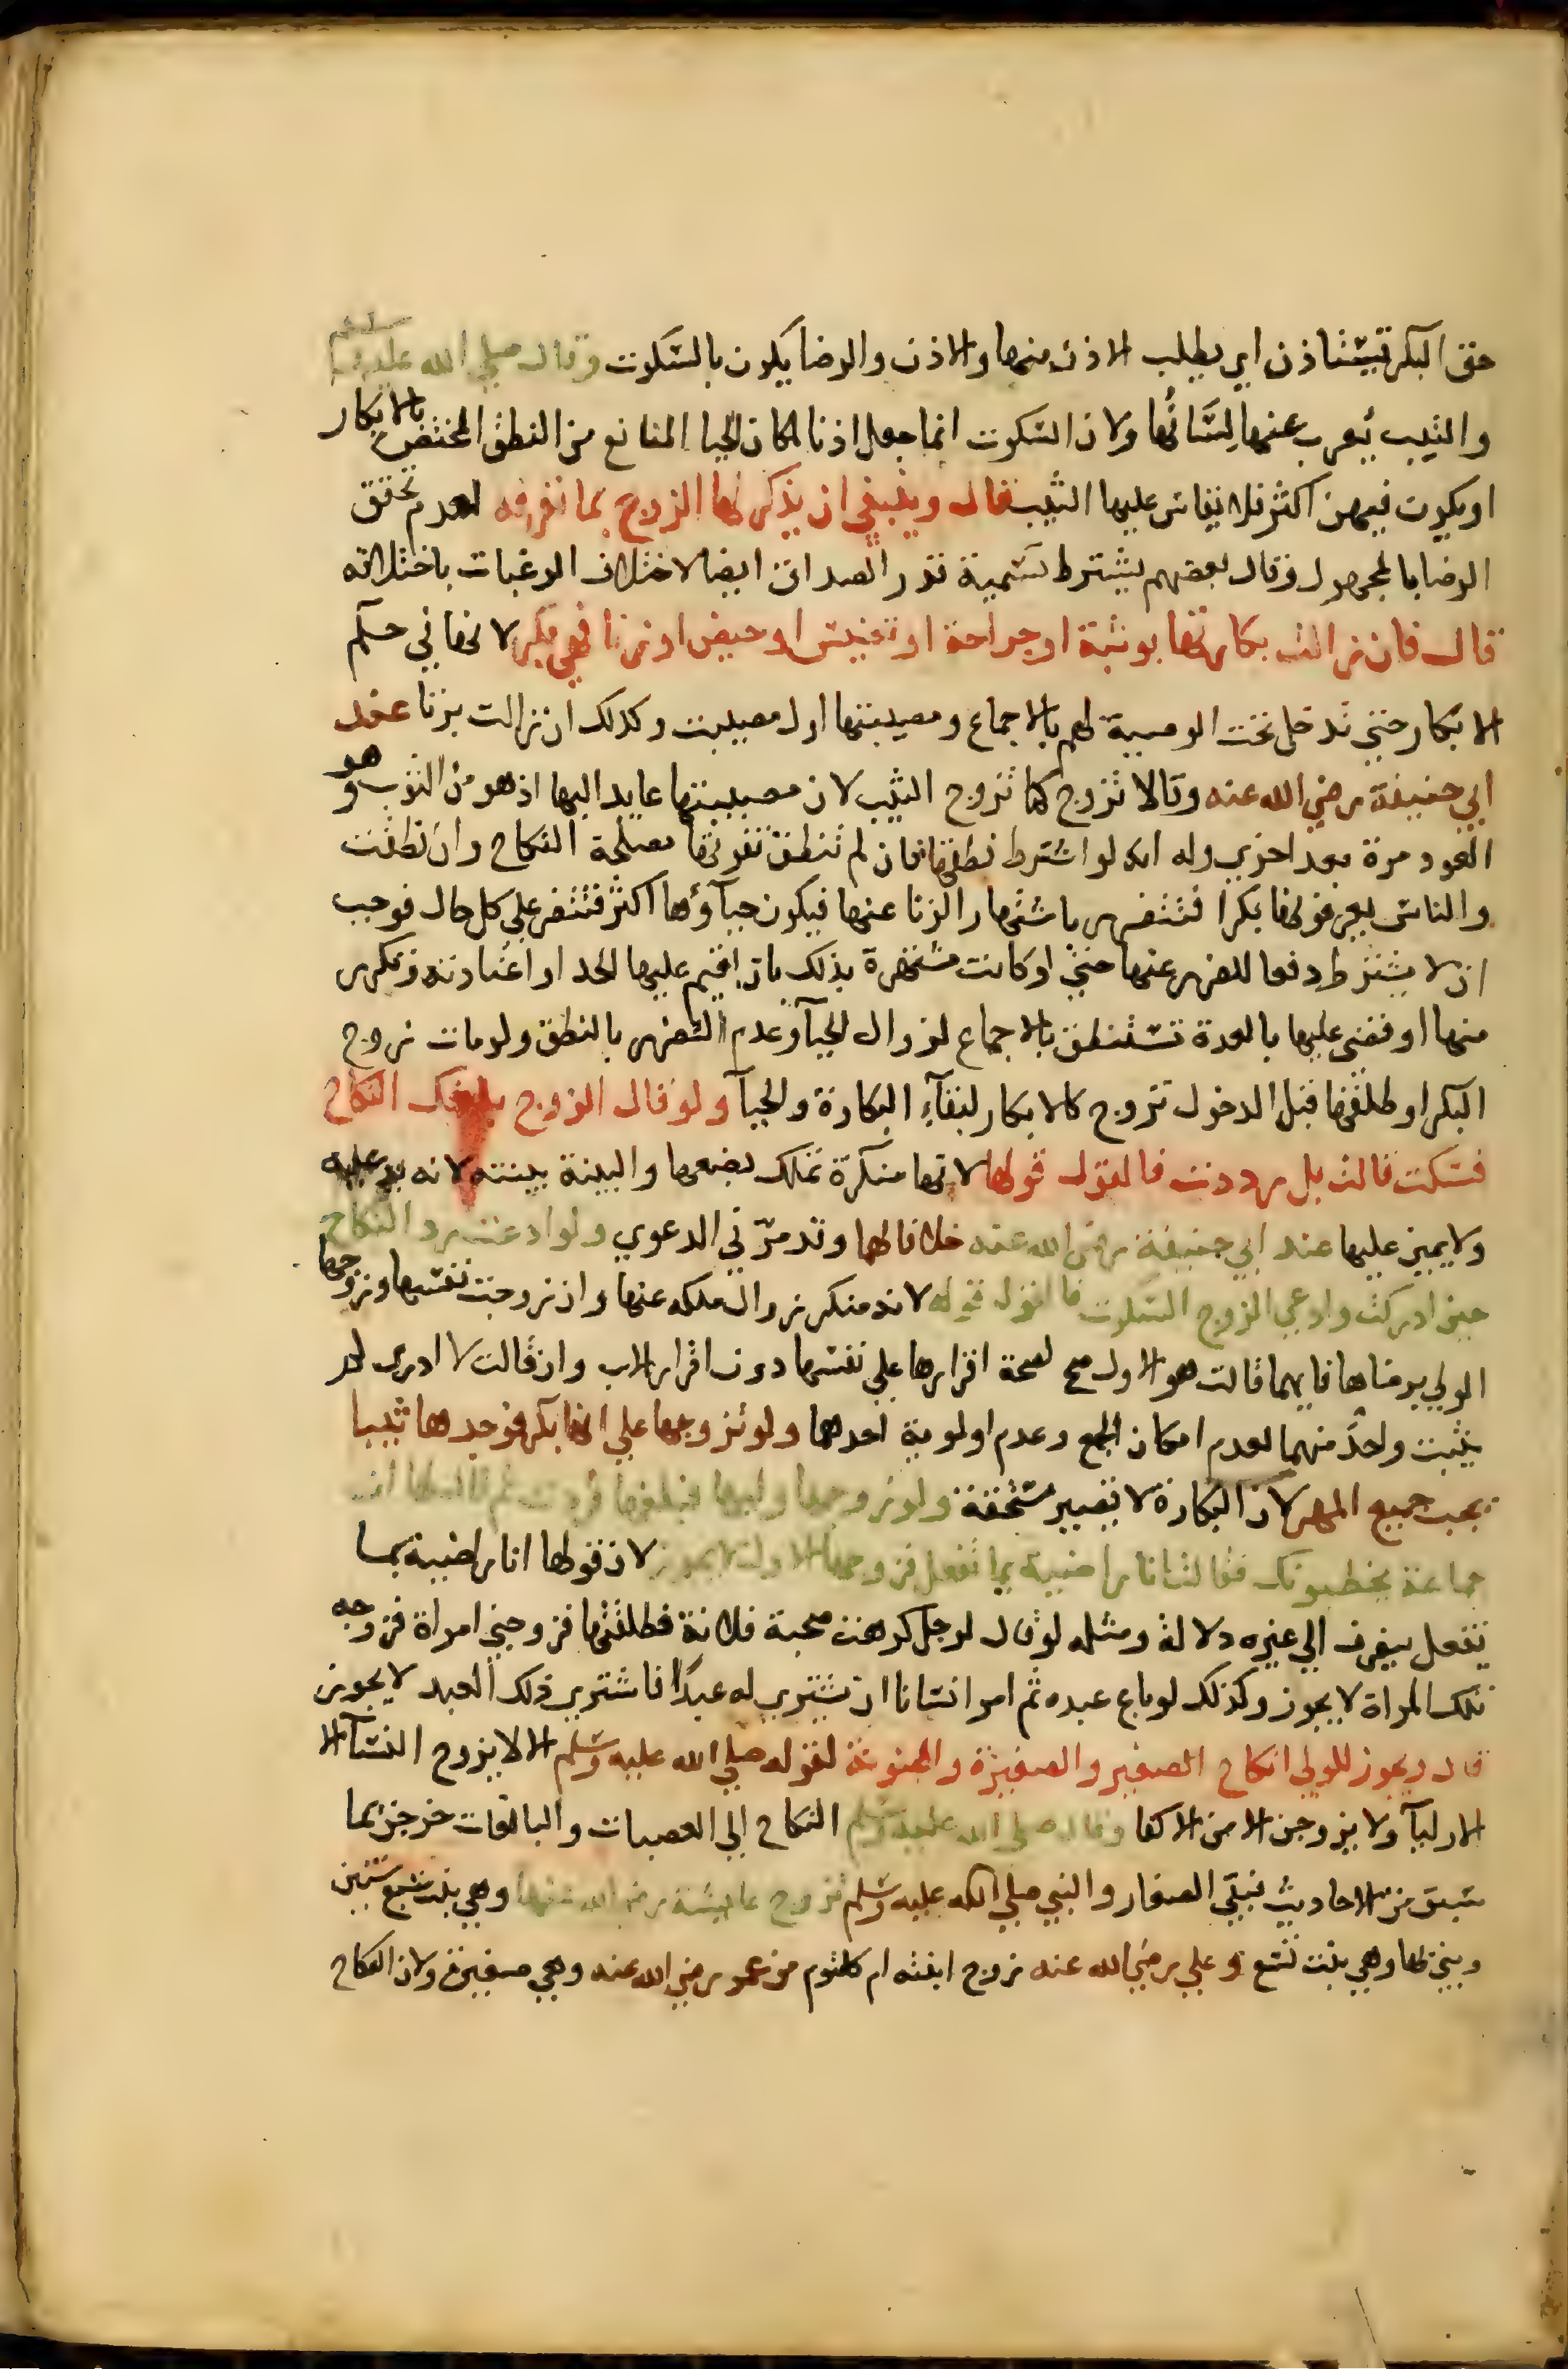 حق البكر تستاذن اي يطلب الاذن منها والاذن والرضا يكون بالسكوت وقال صلى الله عليه وسلم
والثيب يعرب عنها لسانها ولان السكوت انما جعل اذنا لمكان الحيا المانع من النطق المختص بالابكار
او يكون فيهن اكثر فلا يقاس عليها الثيب قال وينبغي ان يذكر لها الزوج بما تعرفه لعدم تحقق
الرضا بالمجهول وقال بعضهم يشترط تسمية قدر الصداق ايضا لاختلاف الرغبات باختلافه
قال فان زالت بكارتها بوثبة او جراحة او تعنيس او حيض او زنا فهي بكر لانها في حكم
الابكار حتى تدخل تحت الوصية لهم بالاجماع ومصيبتها اول مصيبت وكذلك ان زالت بزنا عند
ابي حنيفة رضي الله عنه وقالا تزوج كما تزوج الثيب لان مصيبتها عايد اليها اذ هو من الثوب وهو
العود مرة بعد اخرى وله انه لو اشترط نطقها فان لم تنطق تفوتها مصلحة النكاح وان نطقت
والناس يعرفونها بكرا فتتضرر باشتهار الزنا عنها فيكون حياؤها اكثر فتتضر على كل حال فوجب
ان لا يشترط دفعا للضرر عنها حتى لو كانت مشتهرة بذلك بان اقيم عليها الحد او اعتادته وتكرر
منها او قضى عليها بالعدة تستنطق بالاجماع لزوال الحيآ وعدم التضرر بالنطق ولو مات زوج
البكر او طلقها قبل الدخول تزوج كالابكار لبقآء البكارة والحيآ ولو قال الزوج بلغك النكاح
فسكت قالت بل رددت فالقول قولها لانها منكرة تملك بضعها والبينة بينته لانه يدعيه
ولا يمين عليها عند ابي حنيفة رضي الله عنه خلافا لهما وقد مر في الدعوي ولو ادعت رد النكاح
حين ادركت وادعى الزوج السكوت فالقول قوله لانه منكر زوال ملكه عنها وان زوجت نفسها وزوجها
الولي برضاها فايهما قالت هو الاول صح لصحة اقرارها على نفسها دون اقرار الاب وان قالت لا ادري لم
يثبت واحد منهما لعدم امكان الجمع وعدم اولوية احدهما ولو تزوجها على انها بكر فوجدها ثيبا
يجب جميع المهر لان البكارة لا تصير مستحقة ولو زوجها وليها فبلغها فردت ثم قال لها ان
جماعة يخطبونك فقالت انا راضية بما تفعل فزوجها الاول لا يجوز لان قولها انا راضية بما
تفعل ينصرف الى غيره دلالة ومثله لو قال لرجل كرهت صحبة فلانة فطلقتها فزوجني امراة فزوجه
تلك المراة لا يجوز وكذلك لو باع عبده ثم امر انسانا ان يشتري له عبدا فاشترى ذلك العبد لا يجوز
قال ويجوز للولي انكاح الصغير والصغيرة والمجنونة لقوله صلى الله عليه وسلم الا لا يزوج النسآ الا
الاوليآ ولا يزوجن الا من الاكفا وقال صلى الله عليه وسلم النكاح الى العصبات والبالغات خرجن بما
سبق من الاحاديث فبقي الصغار والنبي صلى الله عليه وسلم تزوج عايشة رضي الله عنها وهي بنت سبع سنين
وبنى بها وهي بنت تسع وعلي رضي الله عنه زوج ابنته ام كلثوم من عمر رضي الله عنه وهي صغيرة ولان النكاح